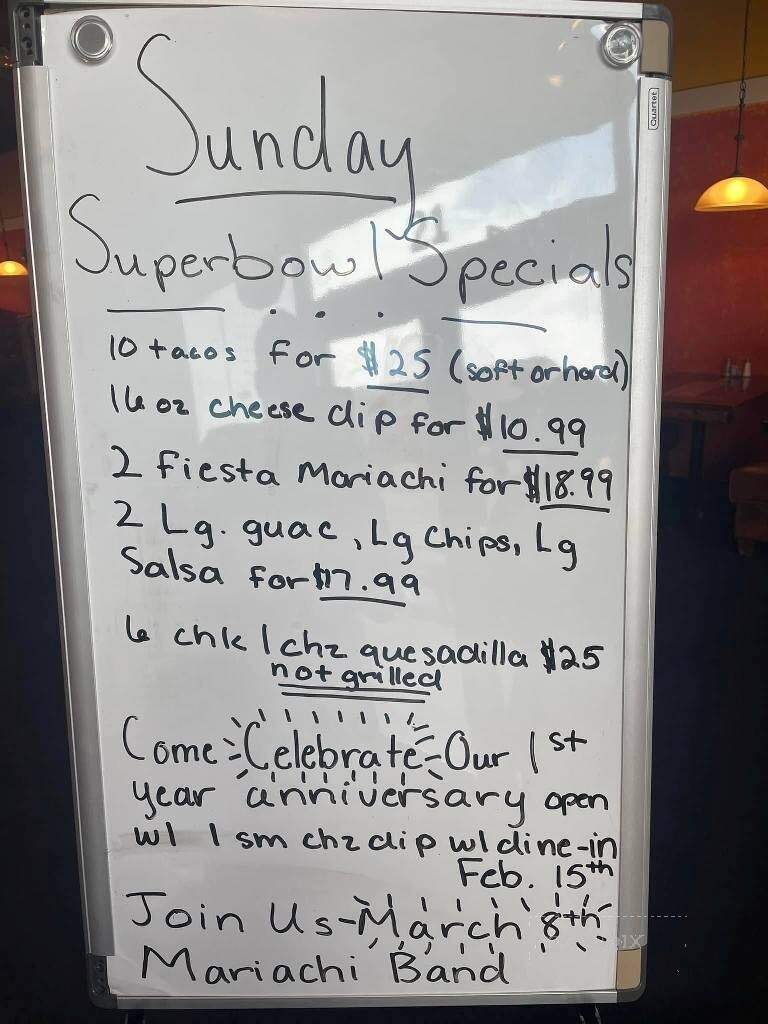 Quartet
Sunday
Superbowl Specials
10 tacos for $25 (soft or hard)
16 oz cheese dip for $10.99
2 Fiesta Mariachi for $18.99
2 Lg. guac, Lg Chips, Lg
Salsa for $17.99
6 chk / chz quesadilla $25
not grilled
Come Celebrate Our 1st
year anniversary open
w/ 1 sm chz dip w/ dine-in
Feb. 15th
Join Us - March 8th
Mariachi Band